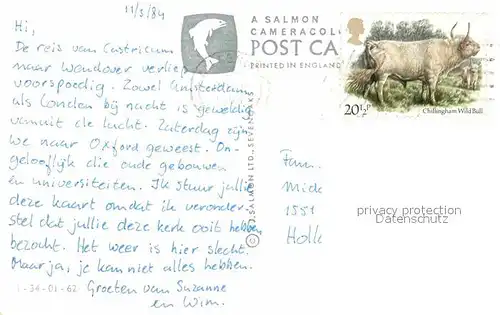 11/3/84
Hi,
De reis van Castricum
naar Wendover verliep
voorspoedig. Zowel Amsterdam
als Londen bij nacht is geweldig
vanuit de lucht. Zaterdag zijn
we naar Oxford geweest. On-
gelooflijk die oude gebouwen
en universiteiten. Ik stuur jullie
deze kaart omdat ik veronder-
stel dat jullie deze kerk ooit hebben
bezocht. Het weer is hier slecht.
Maar ja, je kan niet alles hebben.
Groeten van Suzanne
en Wim.
1-34-01-62
A SALMON
CAMERACOL
POST CA
PRINTED IN ENGLAND
© J. SALMON LTD., SEVENOAKS
20½P
Chillingham Wild Bull
Fam.
Midd
1551
Holl
privacy protection
Datenschutz